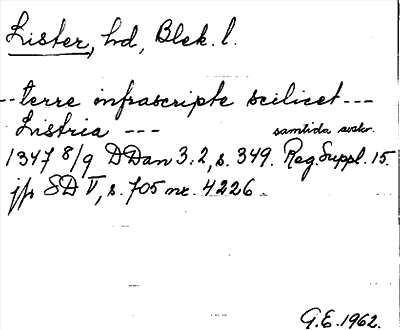 Lister, hd, Blek. l.
-- terre infrascripte scilicet ---
Listria --- samtida avskr.
1347 8/9 DDan 3.2, s. 349. Reg. Suppl. 15.
jfr SD V, s. 705 nr. 4226.
G.E. 1962.